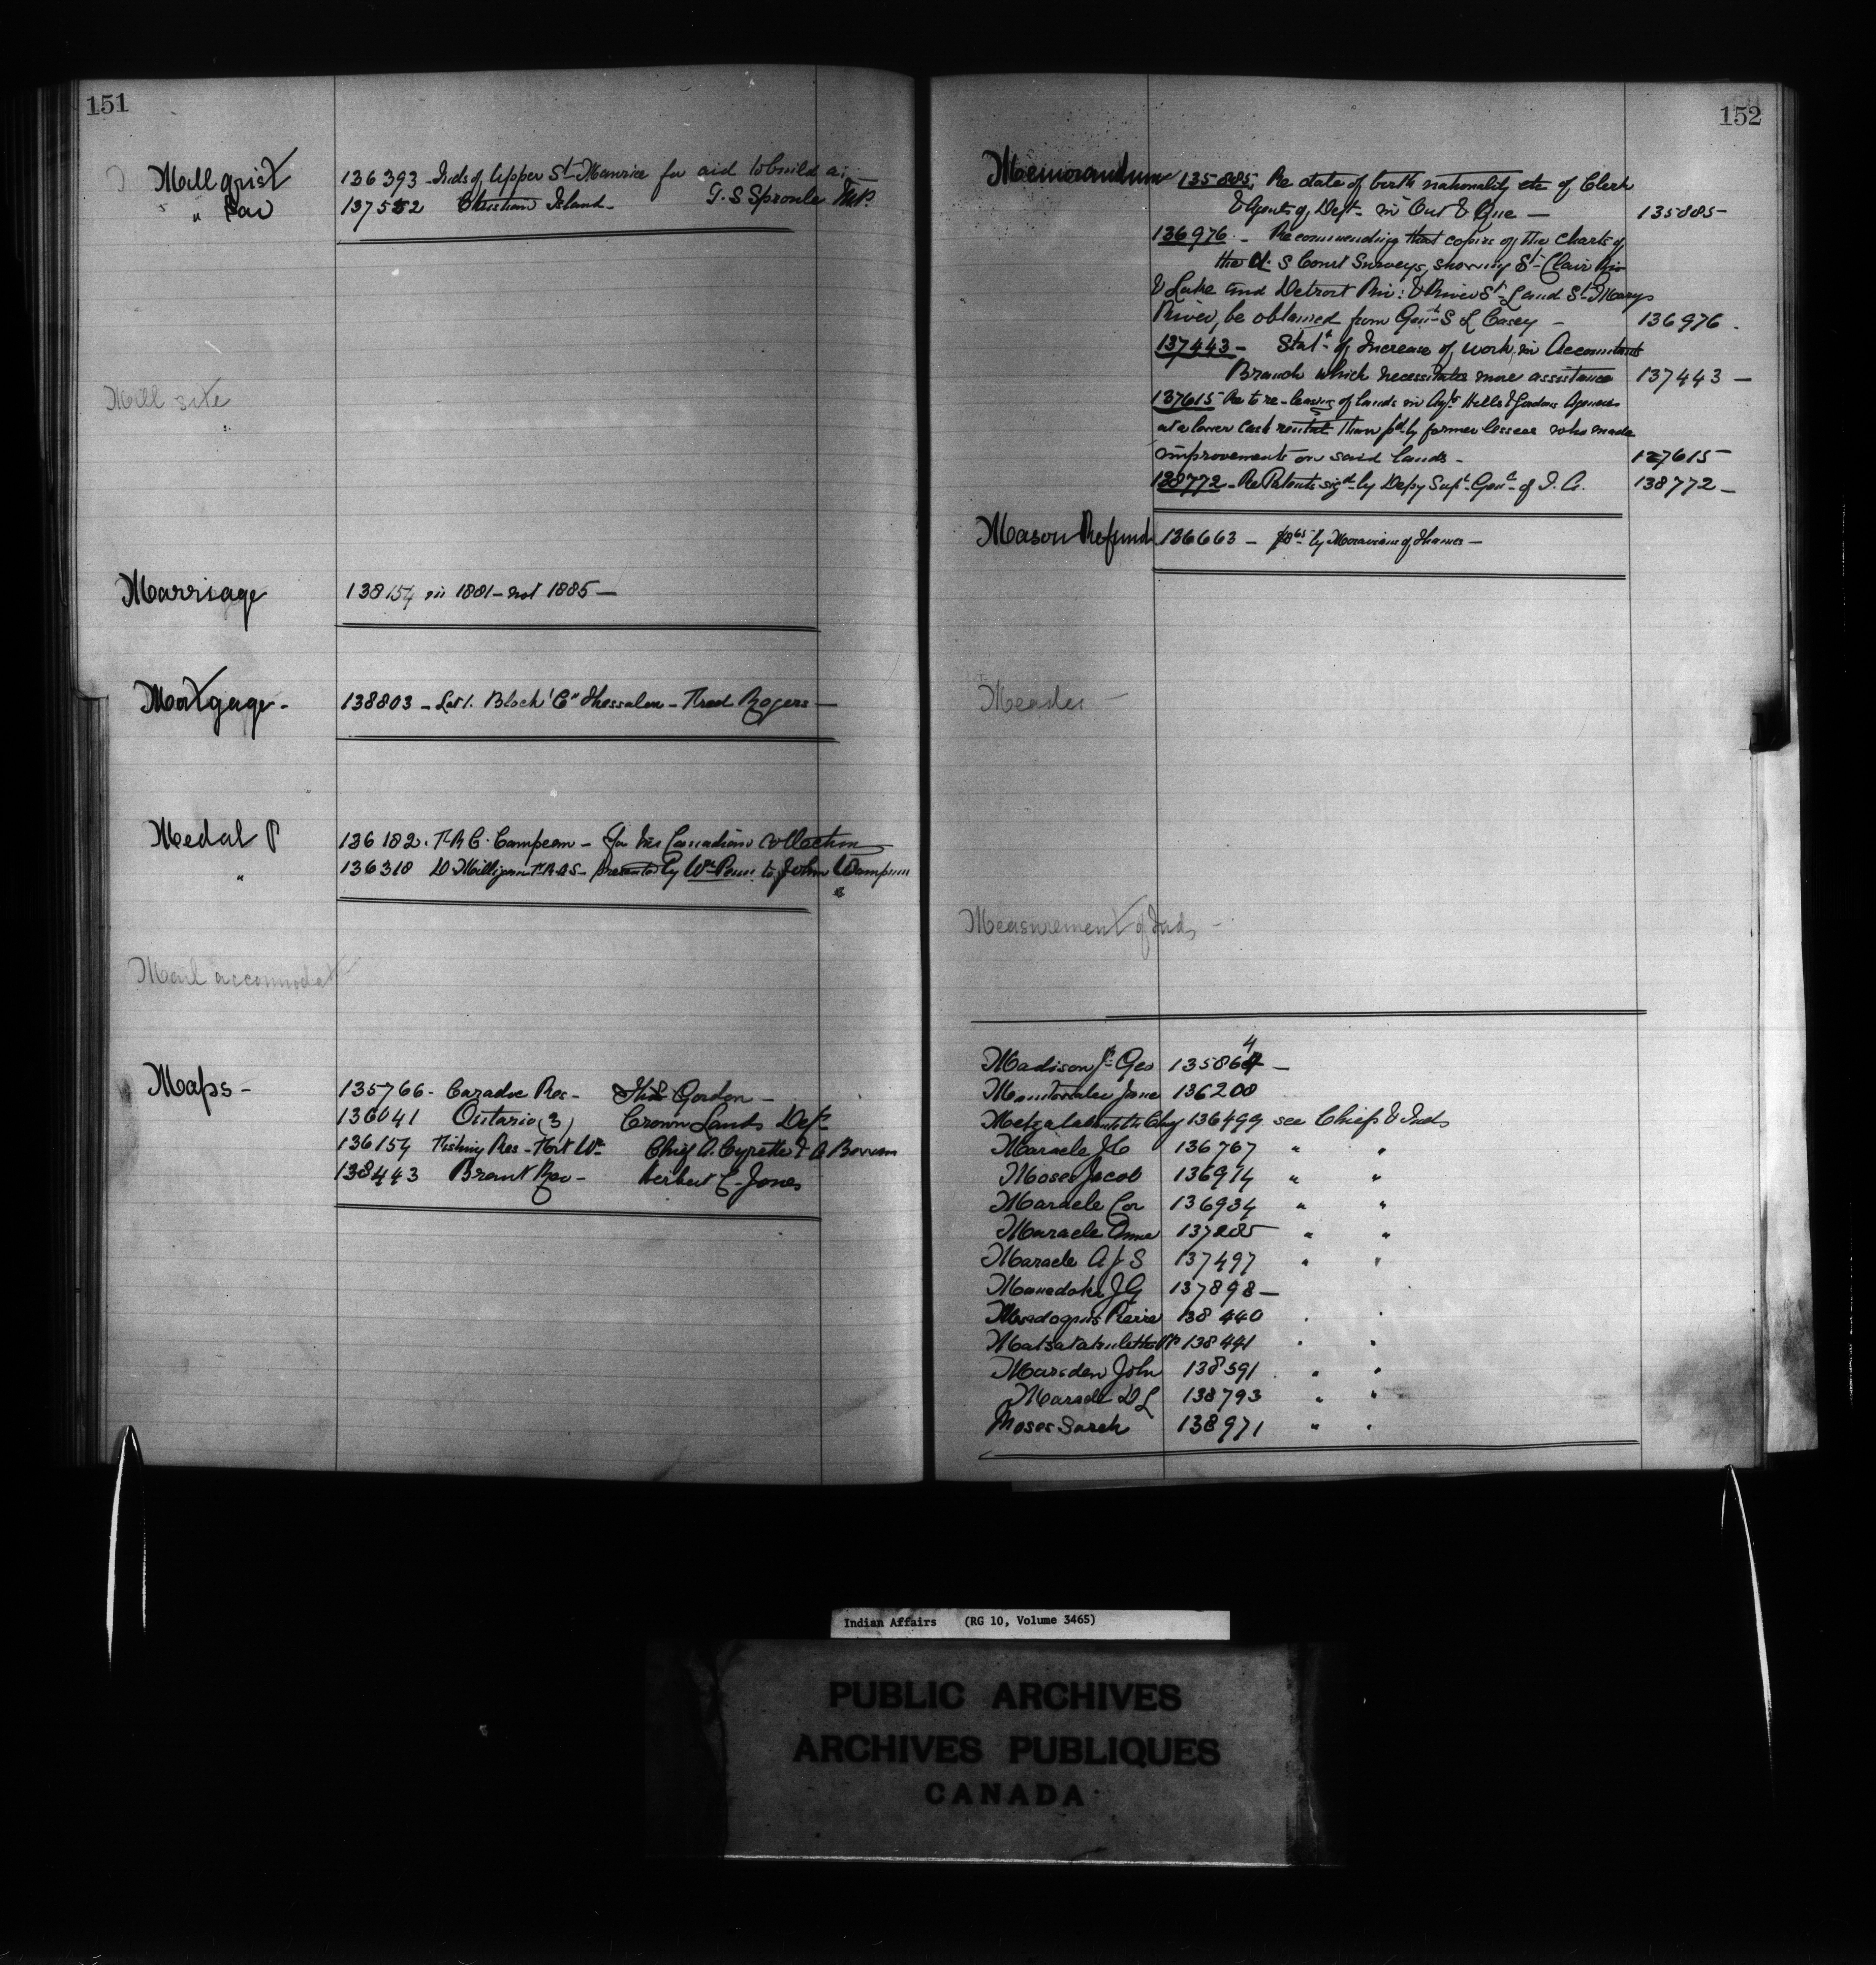 151
Mill grist 136393 - Inds of Upper St Maurice for aid to build a; -
" Saw 137552 Christian Island - G. S Sproule M.P.
Mill site
Marriage 138154 in 1881 - not 1885 -
Mortgage - 138803 - Lot 1. Block "C" Thessalon - Fred Rogers -
Medal 136182. F. R C. Campeau - for his Canadian Collection
" 136310 D Milligan F.R.A.S - presented by Wm Penn to John Wampum
Mail accommodat
Maps - 135766 - Caradoc Res - Gordon -
136041 Ontario (3) Crown Lands Dept
136154 Fishing Res - Fort Wm Chief A. Cyrette & A
138443 Brant Res - Herbert C. Jones
152
Memorandum 135885, Re date of birth nationality etc of Clerk
& Agents of Dept - in Ont & Que - 135885 -
136976 - Recommending that copies of the Charts of
the U. S Const Surveys, showing St Clair Riv
& Lake and Detroit Riv: & River St L and St Marys
River, be obtained from Gen S L Casey - 136976 .
137443 - Stat of Increase of work in Accountants
Branch which necessitates more assistance 137443 -
137615 Re to re-leasing of lands in Agts Hill & Gordons Agencies
at a lower cash rental than pd by former lessees who made
improvements on said lands - 137615 -
138772 - Re Patents sigd by Depy Supt Genl of I. A. 138772 -
Mason Refund 136663 - by Moravians of Thames -
Measurement of Inds -
Madison Jr Geo 135864 -
Jane 136200
136499 see Chiefs & Inds
Maracle 136767 " "
Moses Jacob 136914 " "
Maracle Cor 136934 " "
Maracle Anna 137205 " "
Maracle A J S 137497 " "
J G 137898 -
Pierre 138440 " "
138441 " "
Marsden John 138591 " "
Maracle D L 138793 " "
Moses Sarah 138971 " "
Indian Affairs (RG 10, Volume 3465)
PUBLIC ARCHIVES
ARCHIVES PUBLIQUES
CANADA